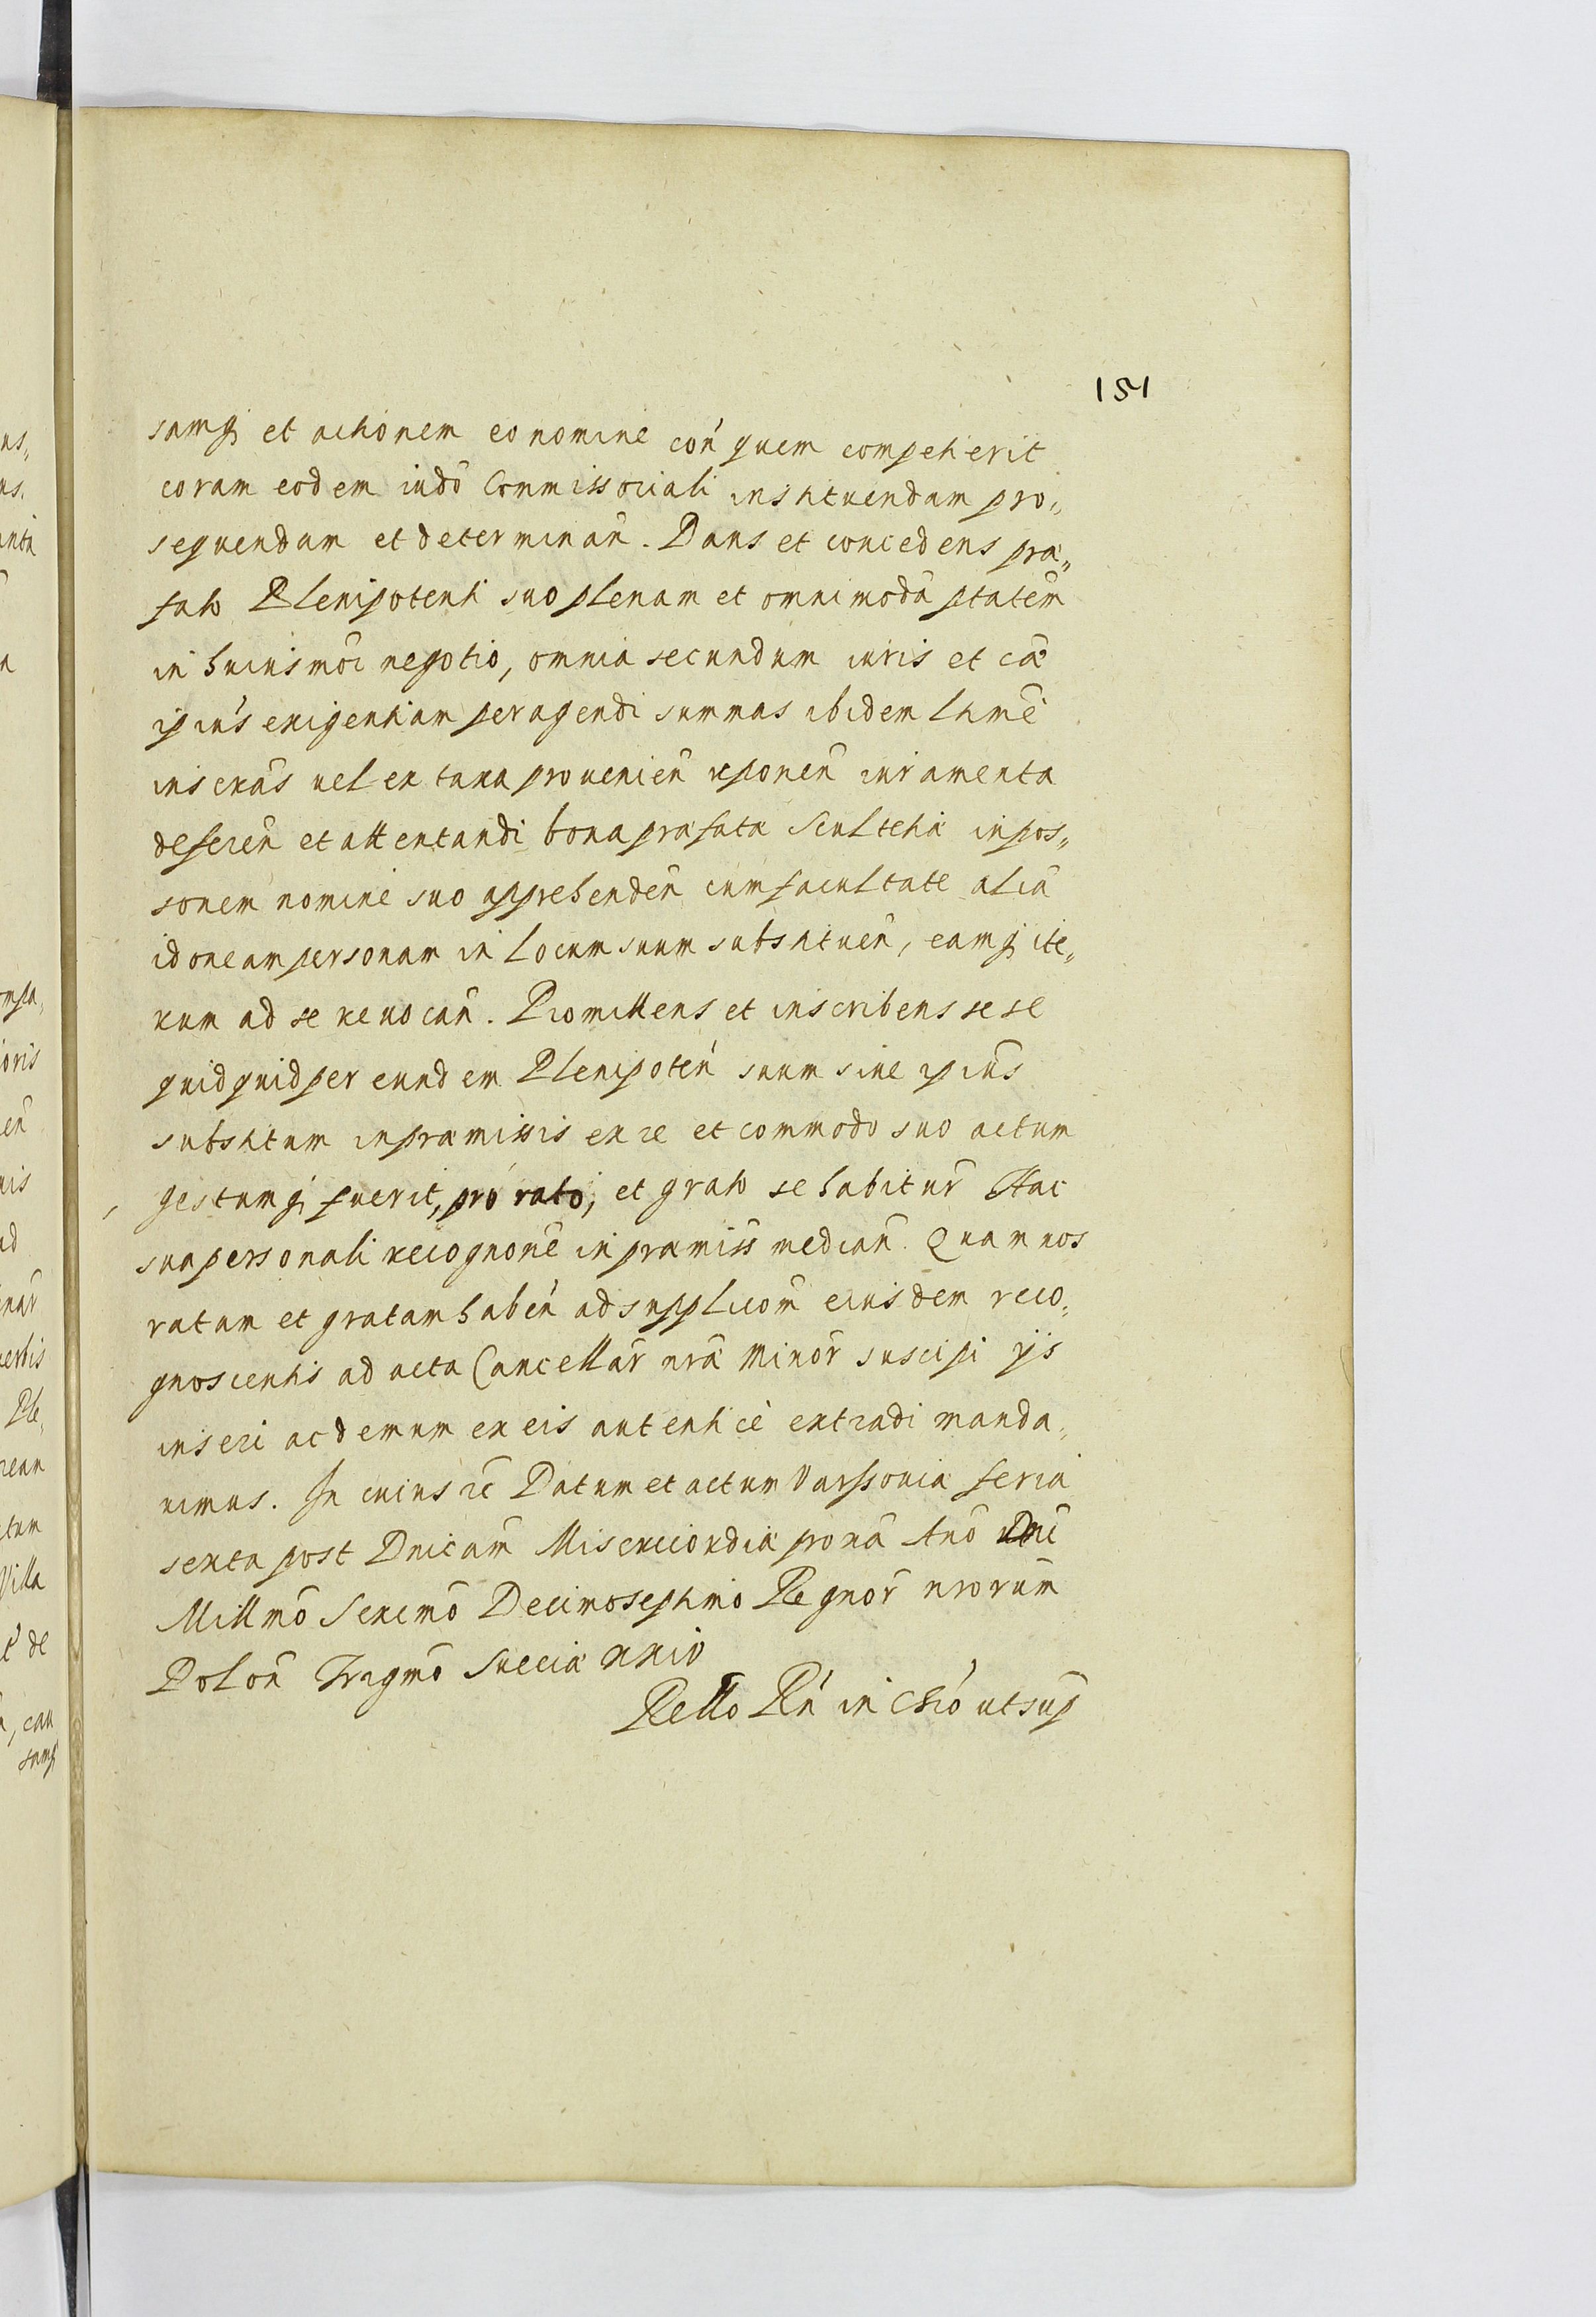 151
samq; et actionem eo nomine con̄ quem competierit
coram eodem iudō Commissoriali instituendam pro„
sequendam et determinan̄. Dans et concedens præ„
fato Plenipotenti suo plenam et omnimodā ptatem̄
in huiusmōi negotio, omnia secundum iuris et cæ
ipius̄ exigentiam peragendi summas ibidem lrīmē
inscrās vel ex taxa provenien̄ reponen̄ iuramenta
deferen̄ et attentandi bona præfata Scultetiæ in pos„
sonem nomine suo apprehenden̄ cum facultate aliā
idoneam personam in locum suum substituen̄, eamq; ite„
rum ad se revocan̄. Promittens et inscribens sese
quidquid per eundem Plenipoten̄ suum sive ipius̄
substitum in præmissis ex re et commodo suo actum
gestumq; fuerit, pro rato, et grato se habitur̄ Hac
sua personali recognōnē in præmiss̄ median̄. Quam nos
ratam et gratam haben̄ ad supplicōm̄ eiusdem reco„
gnoscentis ad acta Cancellar̄ nr̄æ Minor̄ suscipi ijs
inseri ac demum ex eis autenticè extradi manda„
uimus. In cuius rē Datum et actum Varssoviæ feria
sexta post Dnicam̄ Misericordiæ pronā Anō Dnī
Millmō Sexcmō Decimoseptimo Regnor̄ nrorum̄
Polon̄ Trigmō Sueciæ xxiv
Rello Rn̄ in Chrō ut sup